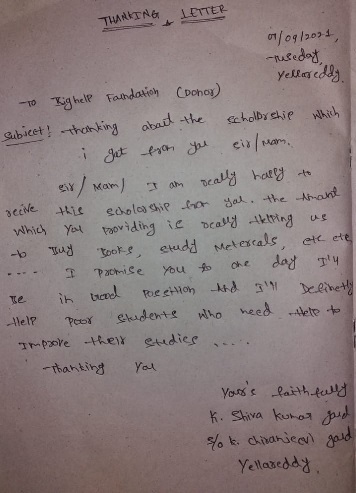 THANKING LETTER
07/09/2021,
Tuseday,
Yellareddy.
To Bighelp Foundation (Donor)
Subject! Thanking about the scholorship which
i get from you sir/Mam.
Sir/Mam/ I am really happy to
recive this scholorship from you. the Amant
which you Providing is really Helping us
to Buy Books, study Matereals, etc etc
.... I promise you to one day I'll
Be in Good Possition And I'll Definetly
Help poor students who need Help to
Improve their studies .....
Thanking you
Your's faithfully
K. Shiva kumar goud
S/o K. chiranjeevi goud
Yellareddy.